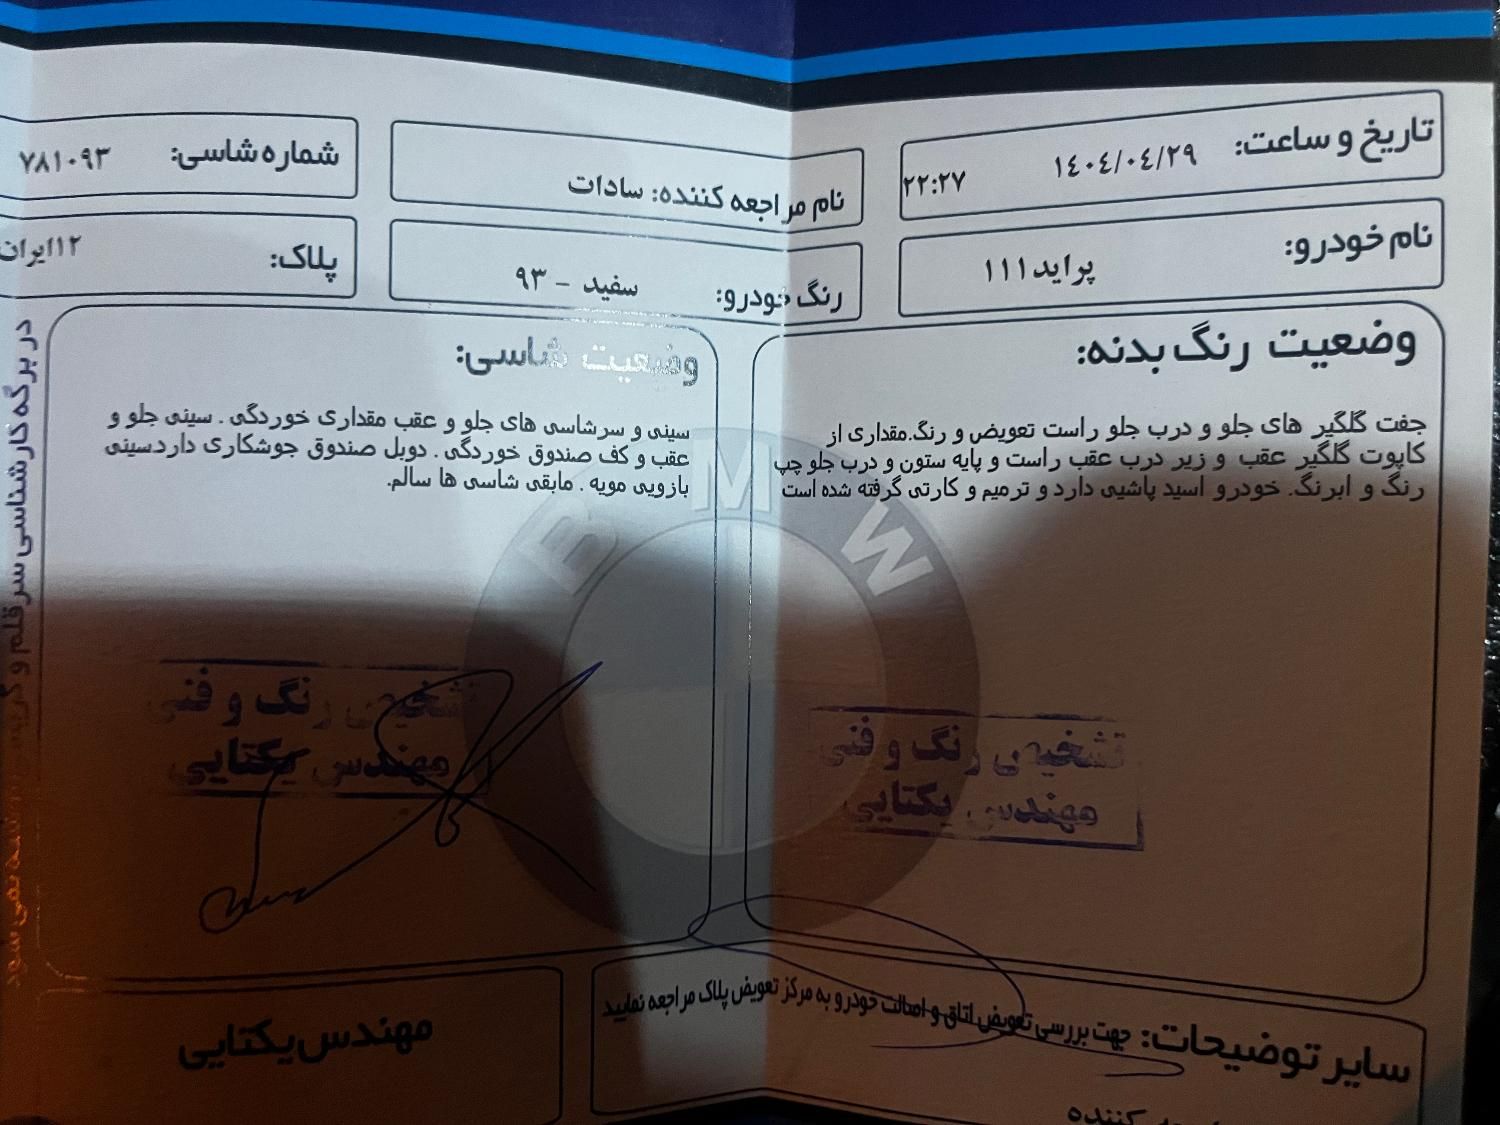 تاریخ و ساعت: ۱٤۰٤/۰٤/۲۹ ۲۲:۲۷
نام مراجعه کننده: سادات
شماره شاسی: ۷۸۱۰۹۳
نام خودرو: پراید۱۱۱
رنگ خودرو: سفید - ۹۳
پلاک: ۱۲ایران
وضعیت رنگ بدنه:
جفت گلگیر های جلو و درب جلو راست تعویض و رنگ.مقداری از
کاپوت گلگیر عقب و زیر درب عقب راست و پایه ستون و درب جلو چپ
رنگ و ابرنگ. خودرو اسید پاشیی دارد و ترمیم و کارتی گرفته شده است
وضعیت شاسی:
سینی و سرشاسی های جلو و عقب مقداری خوردگی . سینی جلو و
عقب و کف صندوق خوردگی . دوبل صندوق جوشکاری دارد.سینی
بازویی مویه . مابقی شاسی ها سالم.
BMW
تشخیص رنگ و فنی
مهندس یکتایی
تشخیص رنگ و فنی
مهندس یکتایی
سایر توضیحات: جهت بررسی تعویض اتاق و اصالت خودرو به مرکز تعویض پلاک مراجعه نمایید
مهندس یکتایی
کننده
در برگه کارشناسی سرقلم و